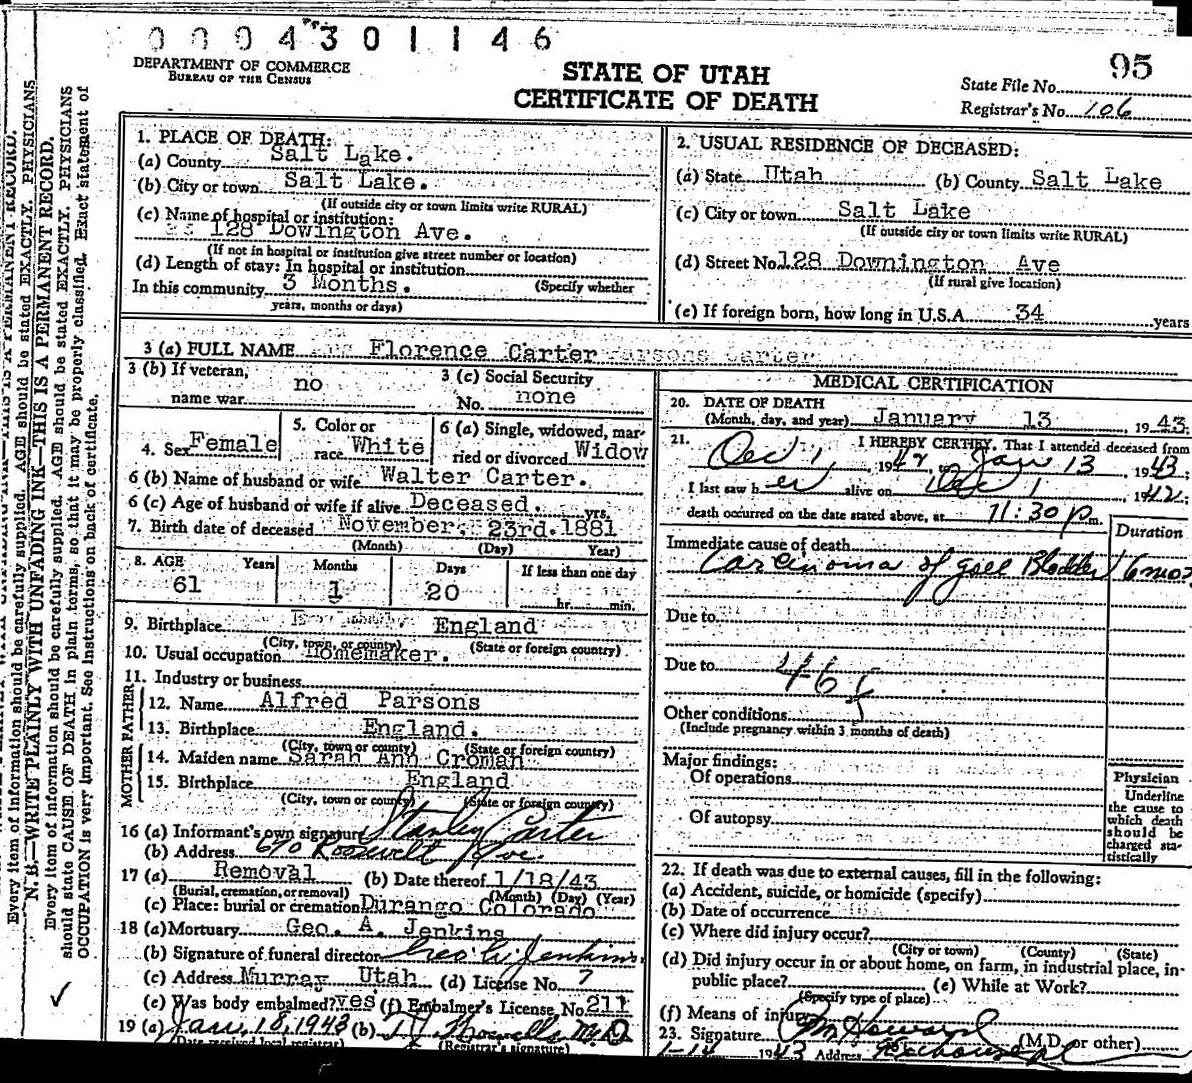 0004301146
DEPARTMENT OF COMMERCE
BUREAU OF THE CENSUS
STATE OF UTAH
CERTIFICATE OF DEATH
95
State File No.
Registrar's No. 106
Every item of information should be carefully supplied. AGE should be stated EXACTLY. PHYSICIANS
N. B.—WRITE PLAINLY WITH UNFADING INK—THIS IS A PERMANENT RECORD.
Every item of information should be carefully supplied. AGE should be stated EXACTLY. PHYSICIANS
should state CAUSE OF DEATH in plain terms, so that it may be properly classified. Exact statement of
OCCUPATION is very important. See Instructions on back of certificate.
1. PLACE OF DEATH:
(a) County Salt Lake.
(b) City or town Salt Lake.
(If outside city or town limits write RURAL)
(c) Name of hospital or institution:
128 Dowington Ave.
(If not in hospital or institution give street number or location)
(d) Length of stay: In hospital or institution
In this community 3 Months. (Specify whether
years, months or days)
2. USUAL RESIDENCE OF DECEASED:
(a) State Utah (b) County Salt Lake
(c) City or town Salt Lake
(If outside city or town limits write RURAL)
(d) Street No. 128 Downington Ave
(If rural give location)
(e) If foreign born, how long in U.S.A. 34 years
3 (a) FULL NAME Florence Carter Parsons Carter
3 (b) If veteran,
name war no
3 (c) Social Security
No. none
4. Sex Female
5. Color or
race White
6 (a) Single, widowed, mar-
ried or divorced Widow
6 (b) Name of husband or wife Walter Carter.
6 (c) Age of husband or wife if alive Deceased. yrs.
7. Birth date of deceased November, 23rd. 1881
(Month) (Day) Year)
8. AGE Years Months Days If less than one day
61 1 20 hr. min.
9. Birthplace England
(City, town, or county) (State or foreign country)
10. Usual occupation Homemaker.
11. Industry or business
FATHER
12. Name Alfred Parsons
13. Birthplace England.
(City, town or county) (State or foreign country)
MOTHER
14. Maiden name Sarah Ann Croman
15. Birthplace England
(City, town or county) (State or foreign country)
16 (a) Informant's own signature Stanley Carter
(b) Address 670 Roosevelt Ave.
17 (a) Removal (b) Date thereof 1/18/43
(Burial, cremation, or removal) (Month) (Day) (Year)
(c) Place: burial or cremation Durango Colorado
18 (a) Mortuary Geo. A. Jenkins
(b) Signature of funeral director Geo A Jenkins
(c) Address Murray Utah (d) License No. 7
(e) Was body embalmed? yes (f) Embalmer's License No. 211
19 (a) Jan. 18, 1943 (b) M.D.
(Date received local registrar) (Registrar's signature)
MEDICAL CERTIFICATION
20. DATE OF DEATH
(Month, day, and year) January 13, 1943.
21. I HEREBY CERTIFY, That I attended deceased from
1942, to Jan 13 1943.
I last saw her alive on Dec 1 1942.
death occurred on the date stated above, at 11:30 P.m.
Duration
Immediate cause of death
Carcinoma of gall Bladder 6 mos
Due to
Due to 46
Other conditions
(Include pregnancy within 3 months of death)
Major findings:
Of operations
Of autopsy
Physician
Underline
the cause to
which death
should be
charged sta-
tistically
22. If death was due to external causes, fill in the following:
(a) Accident, suicide, or homicide (specify)
(b) Date of occurrence
(c) Where did injury occur?
(City or town) (County) (State)
(d) Did injury occur in or about home, on farm, in industrial place, in-
public place? (e) While at Work?
(Specify type of place)
(f) Means of injury
23. Signature M Howard (M.D. or other)
1-14 1943 Address